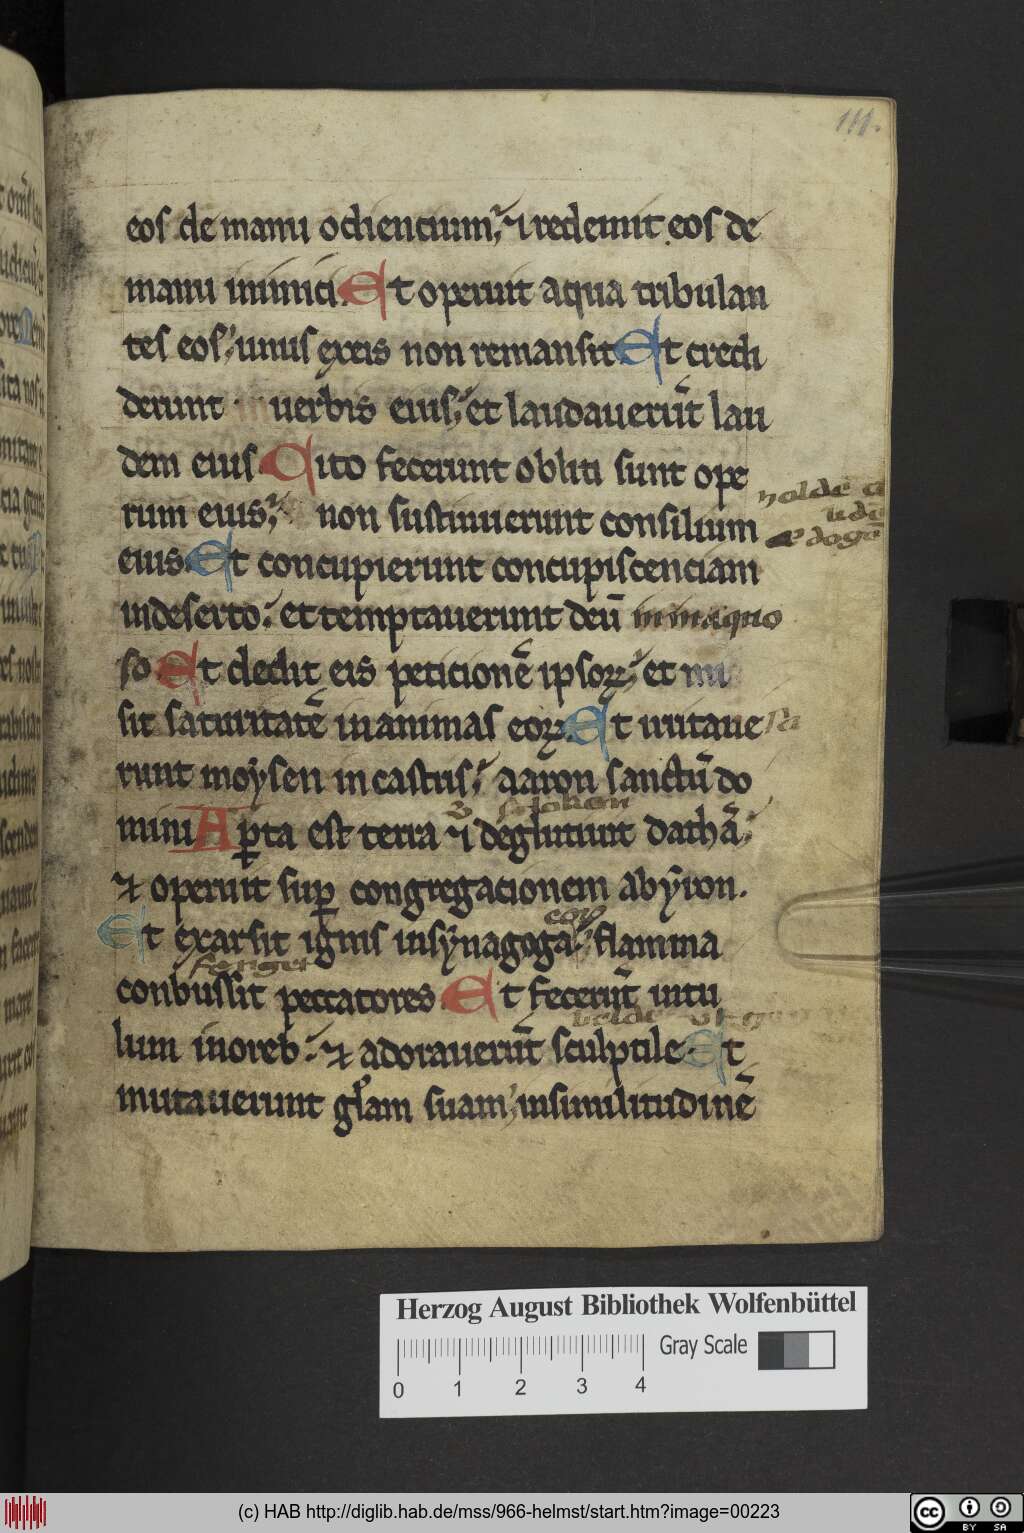 111.
eos de manu odiencium, ⁊ redemit eos de
manu inimici. Et operuit aqua tribulan
tes eos, unus exeis non remansit. Et credi
derunt uerbis eius, et laudauerūt lau
dem eius. Cito fecerunt obliti sunt ope
rum eius, non sustinuerunt consilium
eius. Et concupierunt concupiscenciam
indeserto. et temptauerunt deū ininaquo
so. Et dedit eis peticionē ipsoꝝ, et mi
sit saturitatē inanimas eoꝝ. Et irritaue
runt moẏsen incastris, aaron sanctū do
mini. Aꝑta est terra ⁊ deglutiuit dathā,
⁊ operuit suꝑ congregacionem abẏron.
Et exarsit ignis insẏnagoga eoꝝ, flamma
conbussit peccatores. Et fecerūt uitu
lum inoreb. ⁊ adorauerūt sculptile. Et
mutauerunt gl̄am suam, insimilitudinē
Herzog August Bibliothek Wolfenbüttel
Gray Scale
0 1 2 3 4
(c) HAB http://diglib.hab.de/mss/966-helmst/start.htm?image=00223
cc BY SA